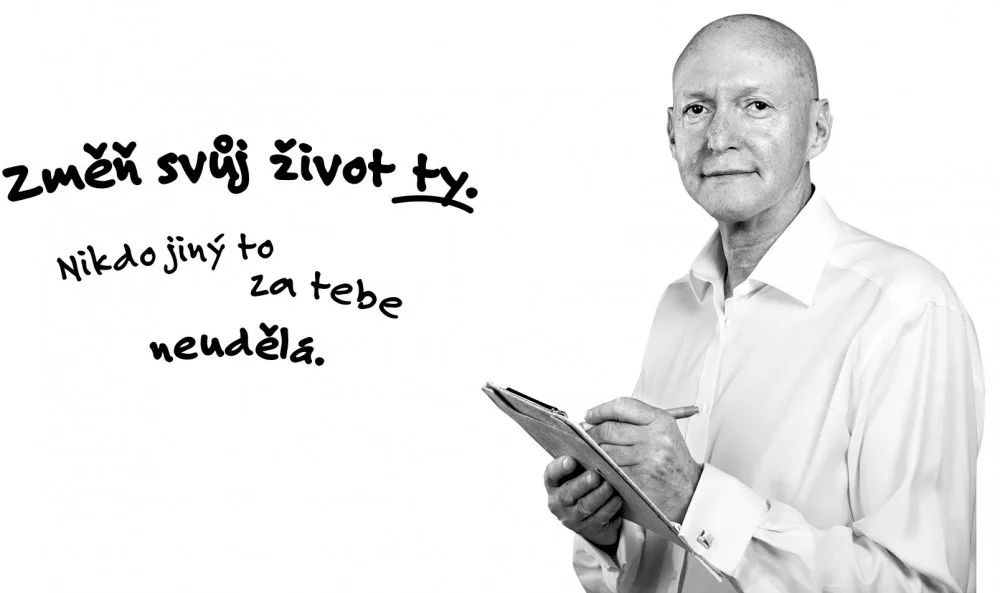 Změň svůj život ty.
Nikdo jiný to
za tebe
neudělá.